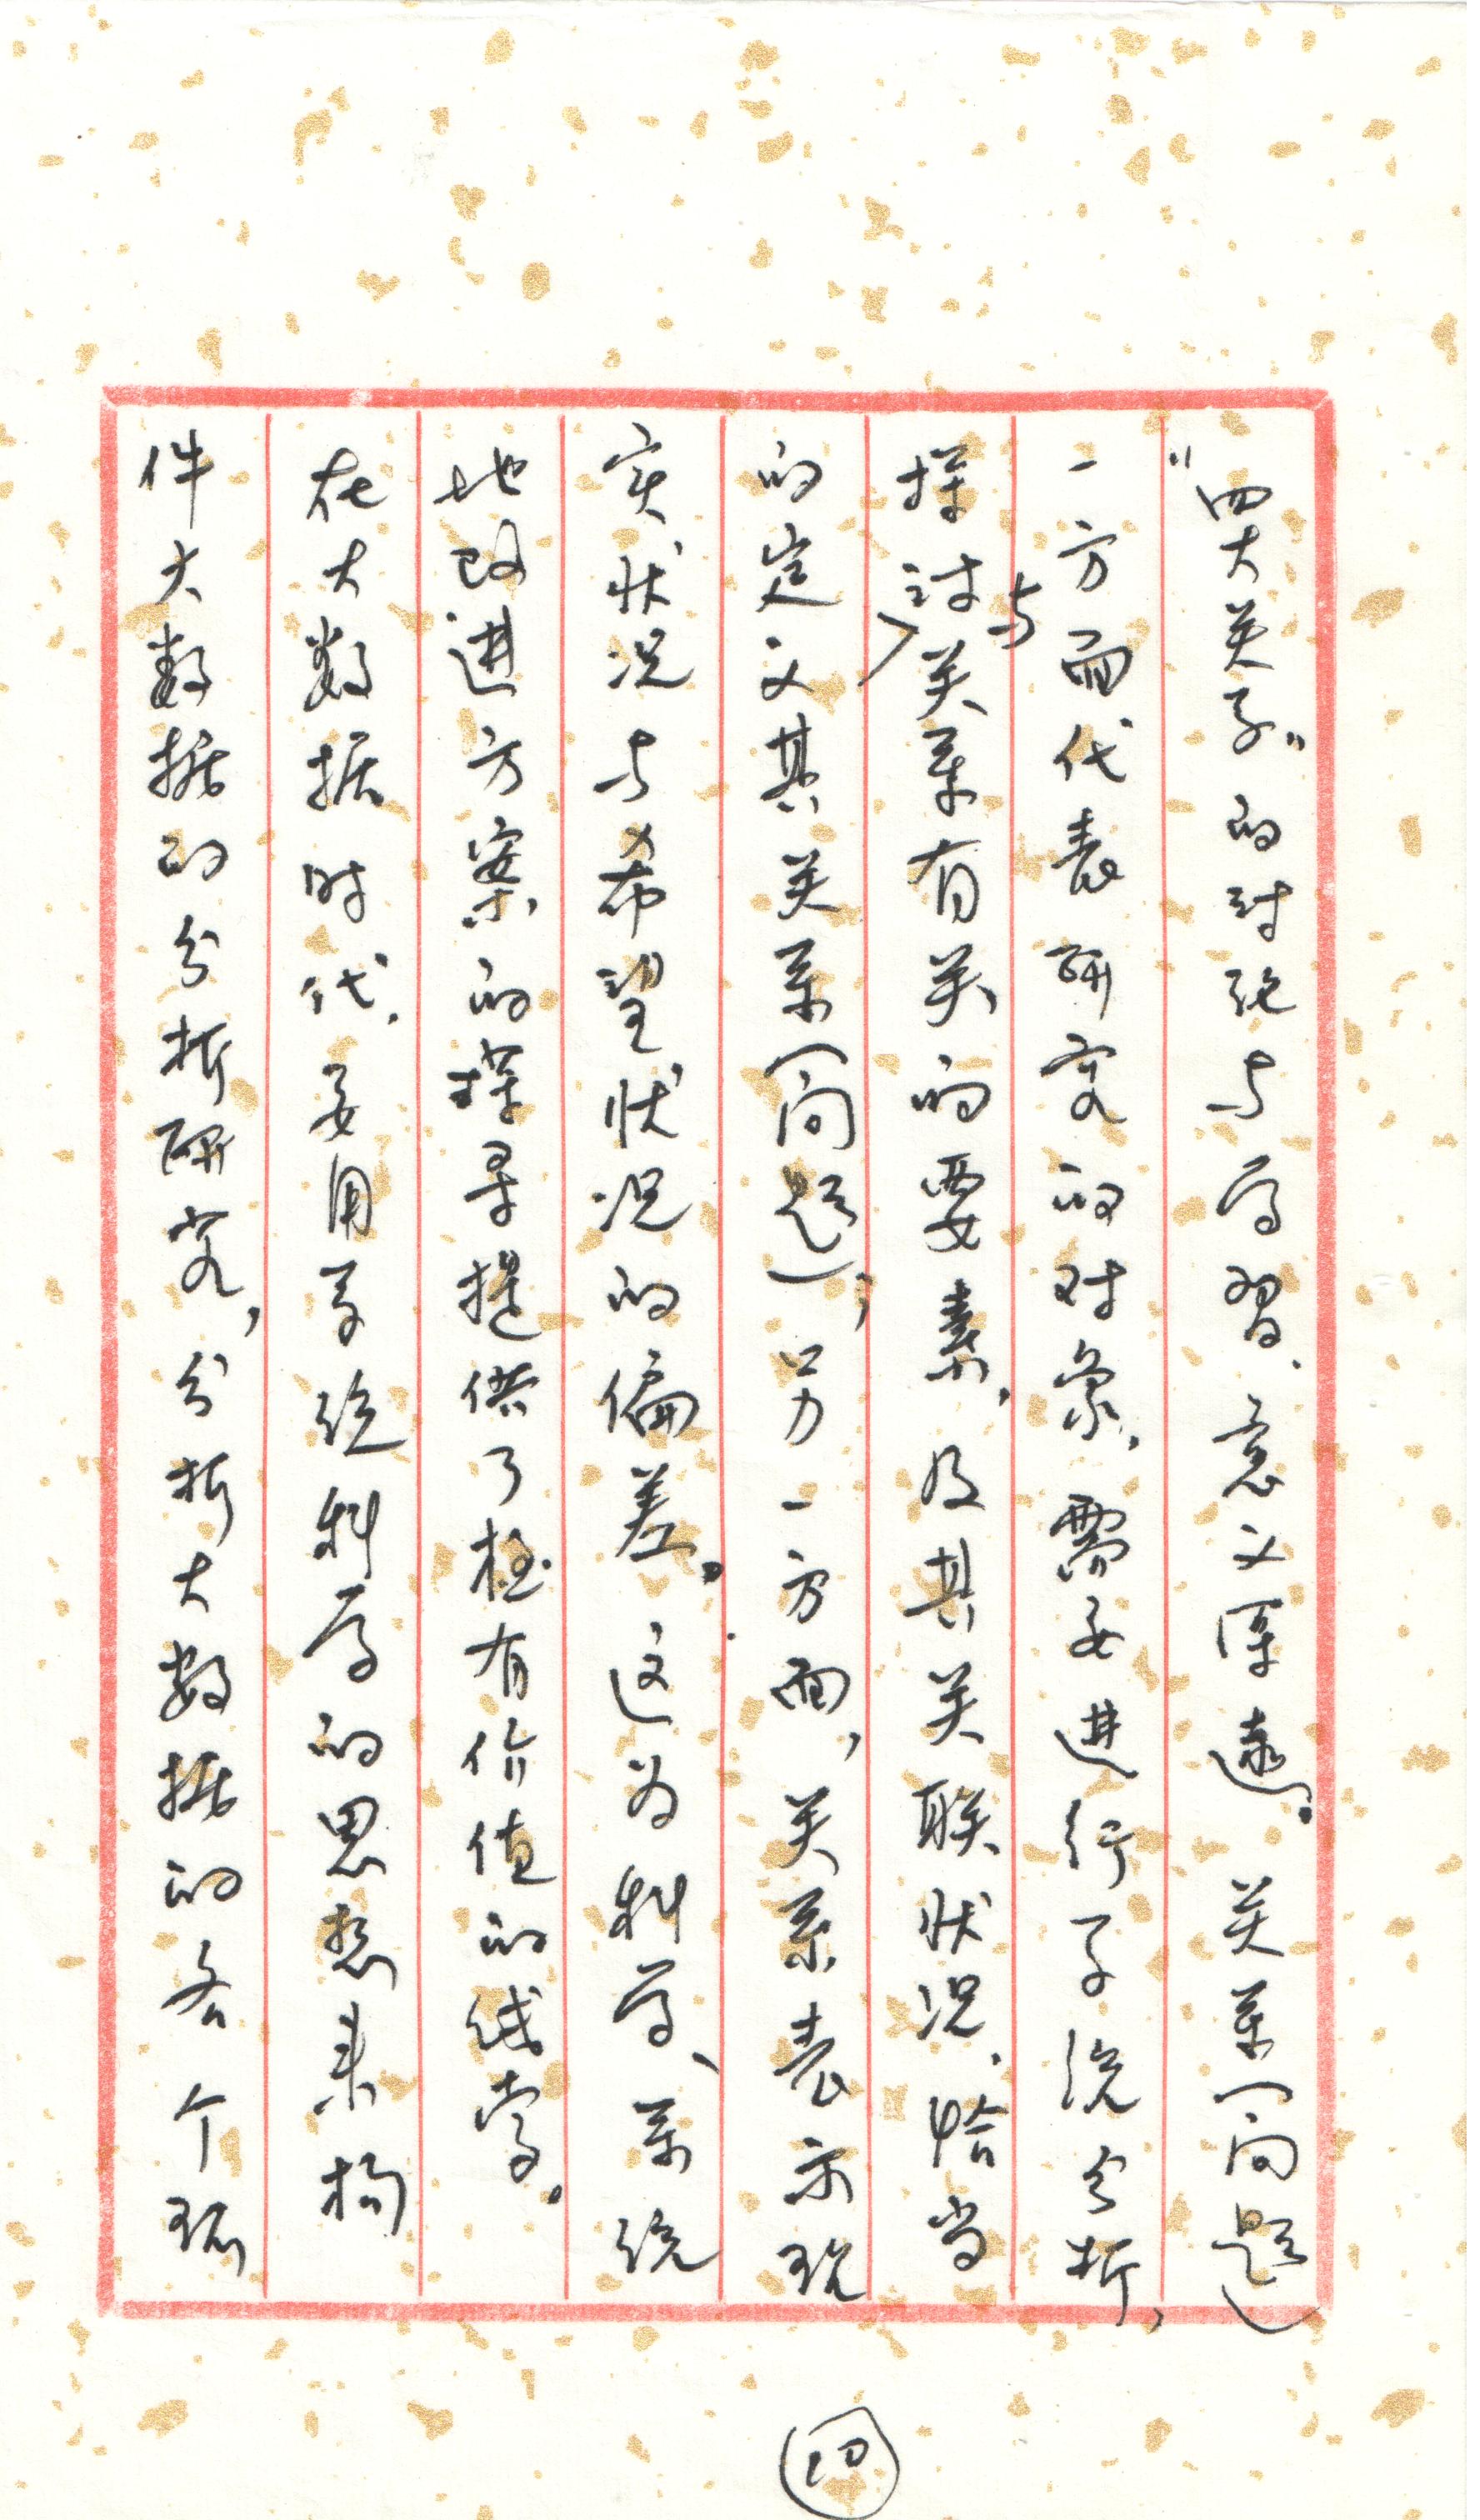 “四大关系”的讨论与学习,意义深远。关系问题
一方面代表研究的对象,需要进行系统分析,
探讨与关系有关的要素,及其关联状况,恰当
的定义其关系问题;另一方面,关系表示现
实状况与希望状况的偏差。这为科学、系统
地改进方案的探寻提供了极有价值的线索。
在大数据时代,要用系统科学的思想来构
件大数据的分析研究,分析大数据的各个环